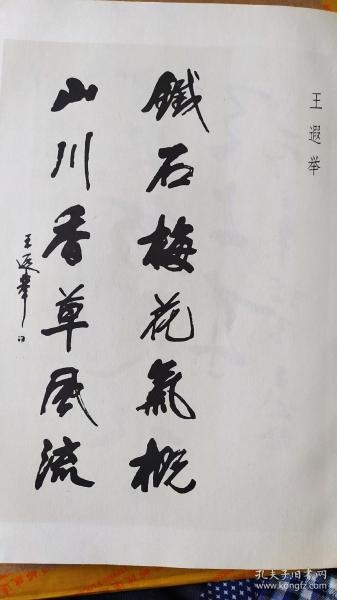 王遐举
鐵石梅花氣概
山川香草風流
王遐舉
孔夫子旧书网
www.kongfz.com